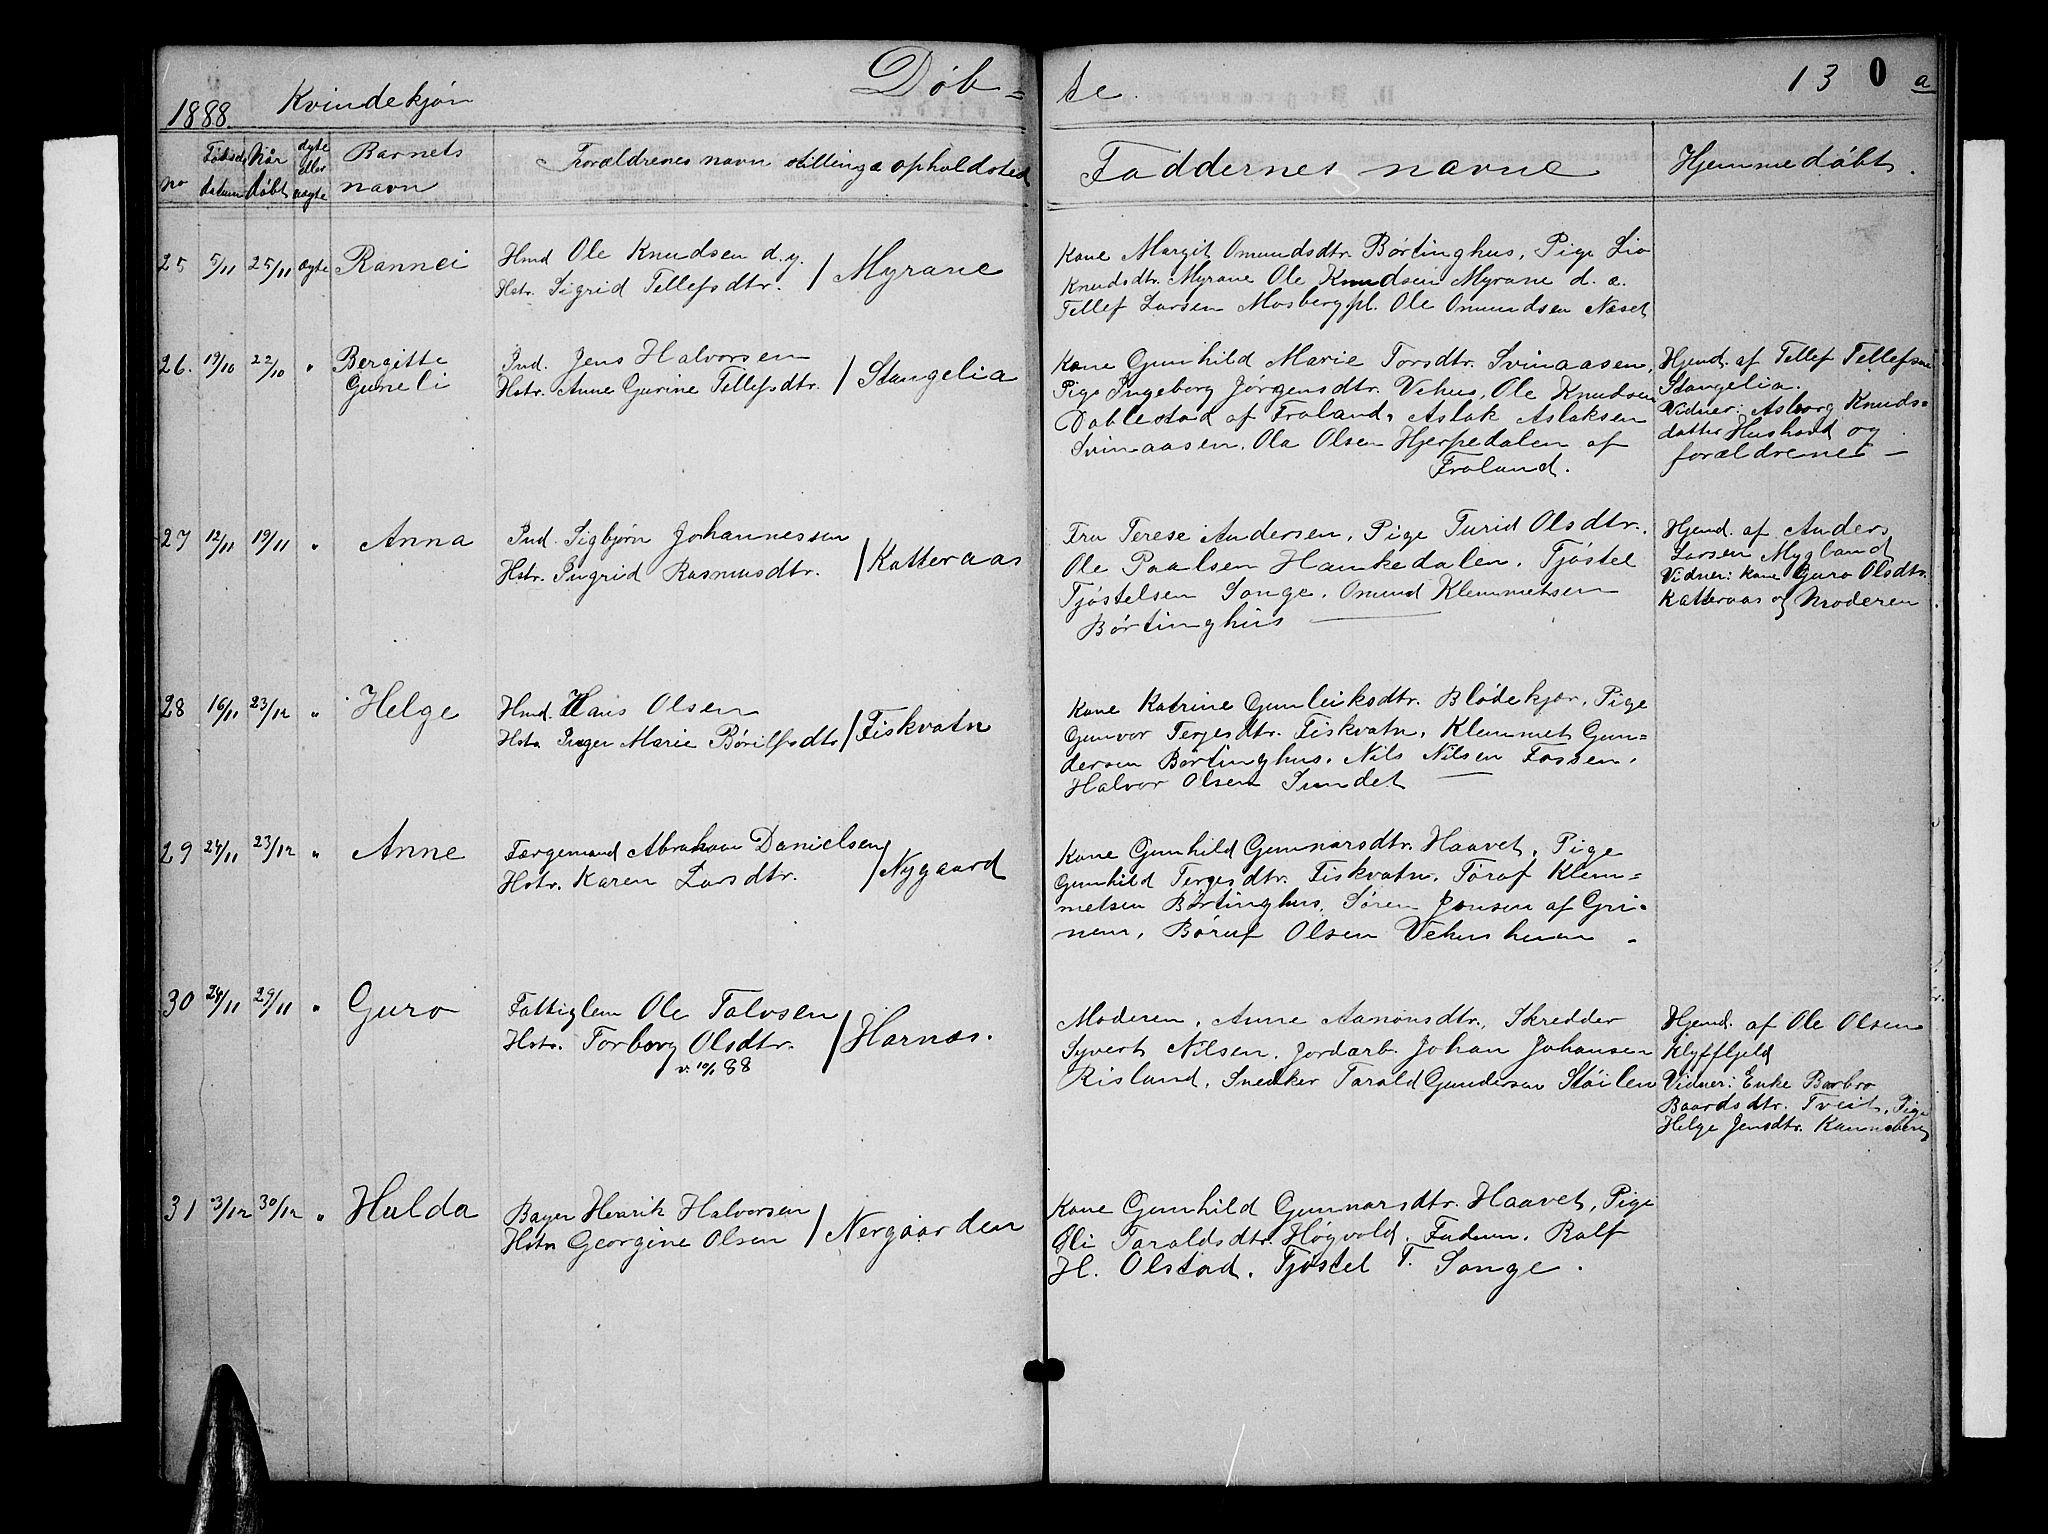 Døb= te.
130 a
1888. Kvindekjøn
no
Fødsels datum
Når døbt
ægte eller uægte
Barnets navn
Forældrenes navn stilling & opholdssted
Faddernes navne
Hjemmedøbt.
25 5/11 25/11 ægte Rannei
Hmd Ole Knudsen d.y.
Hstr. Sigrid Tellefsdtr. / Myrane
Kone Margit Omundsdtr. Børtinghus, Pige Liv
Knudsdtr. Myrane Ole Knudsen Myrane d. æ.
Tellef Larsen Mosbergpl. Ole Omundsen Næset
26. 19/10 22/10 " Bergitte
Guneli
Ind. Jens Halvorsen
Hstr. Anne Gurine Tellefsdtr. / Stangelia
Kone Gunhild Marie Torsdtr. Svinaasen,
Pige Ingeborg Jørgensdtr. Vehus, Ole Knudsen
Dablestad af Froland, Aslak Aslaksen
Svinaasen, Ole Olsen Hjerpedalen af
Froland.
Hjemd. af Tellef Tellefsen
Stangelia.
Vidner: Asborg Knuds=
datter Hushovd og
forældrene —
27 12/11 19/11 " Anna
Ind. Sigbjørn Johannessen
Hstr. Ingrid Rasmusdtr. / Katteraas
Fru Terese Andersen, Pige Turid Olsdtr.
Ole Paalsen Haukedalen, Tjøstel
Tjøstelsen Songe, Omund Klemmetsen
Børtinghus —
Hjemd. af Anders
Larsen Mygland
Vidner: Kone Guro Olsdtr.
Katteraas og Moderen
28 16/11 23/12 " Helge
Hmd. Hans Olsen
Hstr Inger Marie Børilfsdtr / Fiskvatn
Kone Katrine Gunleiksdtr. Blødekjær, Pige
Gunvor Tergesdtr. Fiskvatn, Klemmet Gun=
dersen Børtinghus, Nils Nilsen Fossen,
Halvor Olsen Sundet —
29 24/11 23/12 " Anne
Færgemand Abraham Danielsen
Hstr. Karen Larsdtr. / Nygaard
Kone Gunhild Gunnarsdtr. Haavet, Pige
Gunhild Tergesdtr. Fiskvatn, Toraf Klem=
metsen Børtinghus, Søren Jensen af Gri=
nem, Børuf Olsen Vehusheien.
30 24/11 29/11 " Guro
Fattiglem Ole Talvsen
Hstr. Torborg Olsdtr. / Harnæs.
v. 10/6 88
Moderen, Anne Aanonsdtr., Skredder
Syvert Nilsen, Jordarb. Johan Johansen
Risland, Snedker Tarald Gundersen Støilen
Hjemd. af Ole Olsen
Klyffjeld
Vidner: Enke Barbro
Baardsdtr. Tveit, Pige
Helge Jensdtr. Kannsberg
31 3/12 30/12 " Hulda
Bager Henrik Halvorsen
Hstr Georgine Olsen / Nergaarden
Kone Gunhild Gunnarsdtr. Haavet, Pige
Oli Taraldsdtr. Høgvold. Faderen, Rolf
H. Olstad, Tjøstel T. Songe.